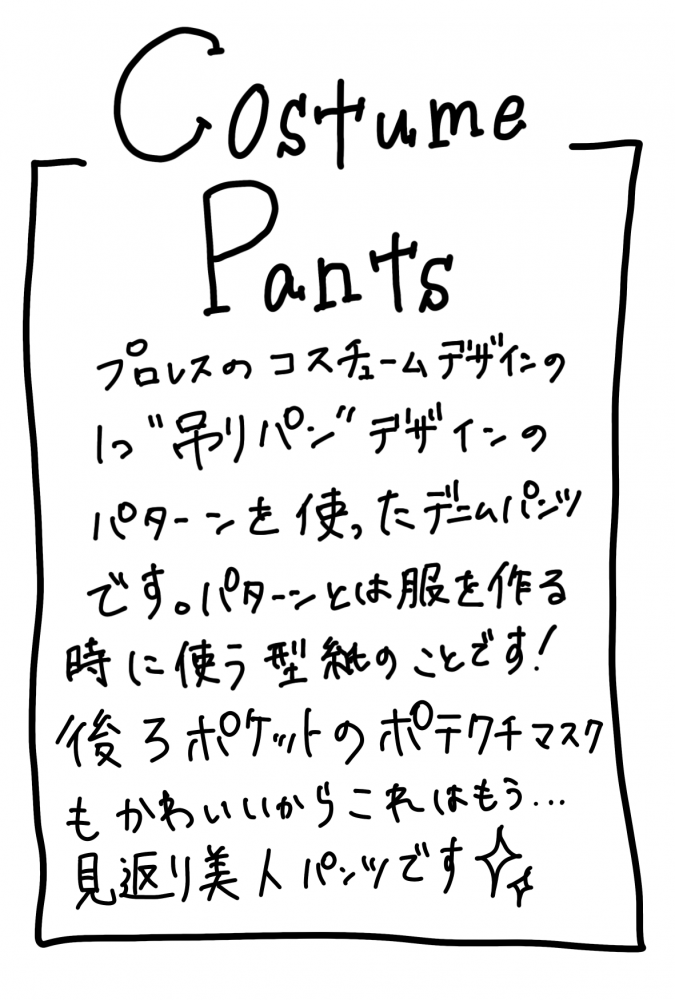 Costume
Pants
プロレスのコスチュームデザインの
1つ"吊りパン"デザインの
パターンを使ったデニムパンツ
です。パターンとは服を作る
時に使う型紙のことです!
後ろポケットのポテクチマスク
もかわいいからこれはもう...
見返り美人パンツです